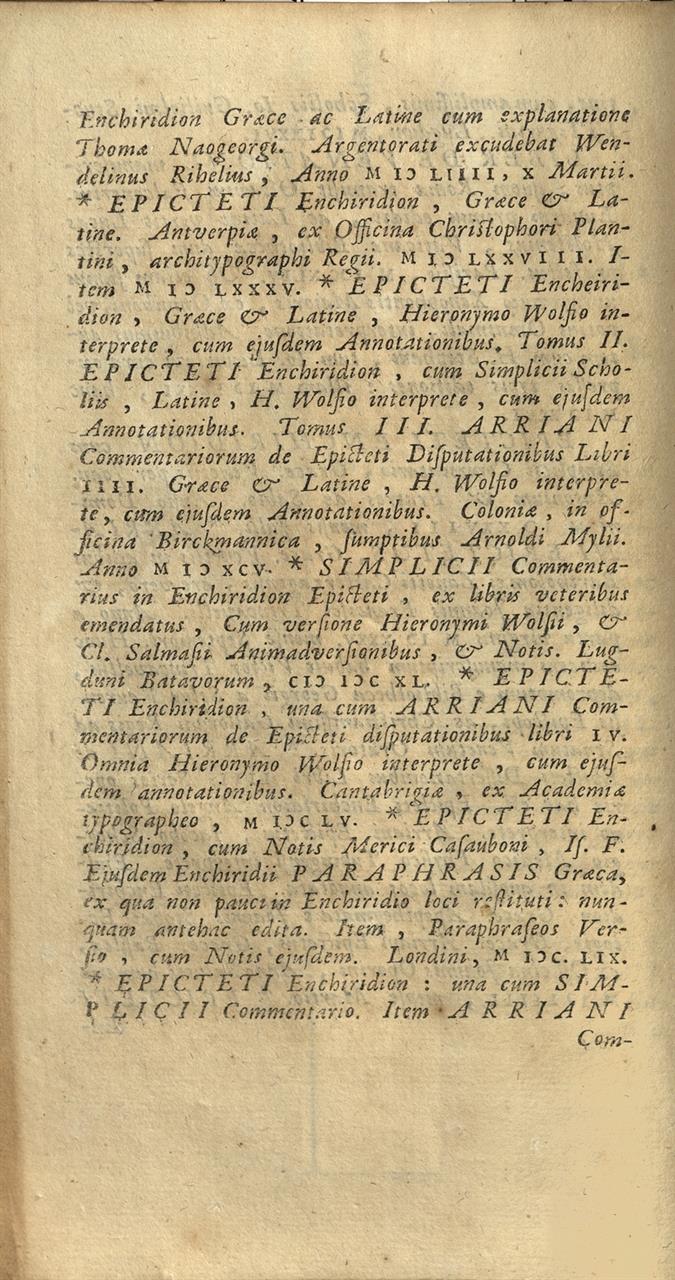 Enchiridion Græce ac Latine cum explanatione
Thomæ Naogeorgi. Argentorati excudebat Wen-
delinus Rihelius, Anno M IↃ LIIII, X Martii.
* EPICTETI Enchiridion, Græce & La-
tine. Antverpiæ, ex Officina Christophori Plan-
tini, architypographi Regii. M IↃ LXXVIII. I-
tem M IↃ LXXXV. * EPICTETI Encheiri-
dion, Græce & Latine, Hieronymo Wolfio in-
terprete, cum ejuſdem Annotationibus. Tomus II.
EPICTETI Enchiridion, cum Simplicii Scho-
liis, Latine, H. Wolfio interprete, cum ejuſdem
Annotationibus. Tomus III. ARRIANI
Commentariorum de Epicteti Diſputationibus Libri
IIII. Græce & Latine, H. Wolfio interpre-
te, cum ejuſdem Annotationibus. Coloniæ, in of-
ficina Birckmannica, ſumptibus Arnoldi Mylii.
Anno M IↃ XCV. * SIMPLICII Commenta-
rius in Enchiridion Epicteti, ex libris veteribus
emendatus, Cum verſione Hieronymi Wolfii, &
Cl. Salmaſii Animadverſionibus, & Notis. Lug-
duni Batavorum, CIↃ IↃC XL. * EPICTE-
TI Enchiridion, una cum ARRIANI Com-
mentariorum de Epicteti diſputationibus libri IV.
Omnia Hieronymo Wolfio interprete, cum ejuſ-
dem annotationibus. Cantabrigiæ, ex Academiæ
typographeo, M IↃC LV. * EPICTETI En-
chiridion, cum Notis Merici Caſauboni, Iſ. F.
Ejuſdem Enchiridii PARAPHRASIS Græca,
ex qua non pauci in Enchiridio loci reſtituti: nun-
quam antehac edita. Item, Paraphraſeos Ver-
ſio, cum Notis ejuſdem. Londini, M IↃC. LIX.
* EPICTETI Enchiridion: una cum SIM-
PLICII Commentario. Item ARRIANI
Com-